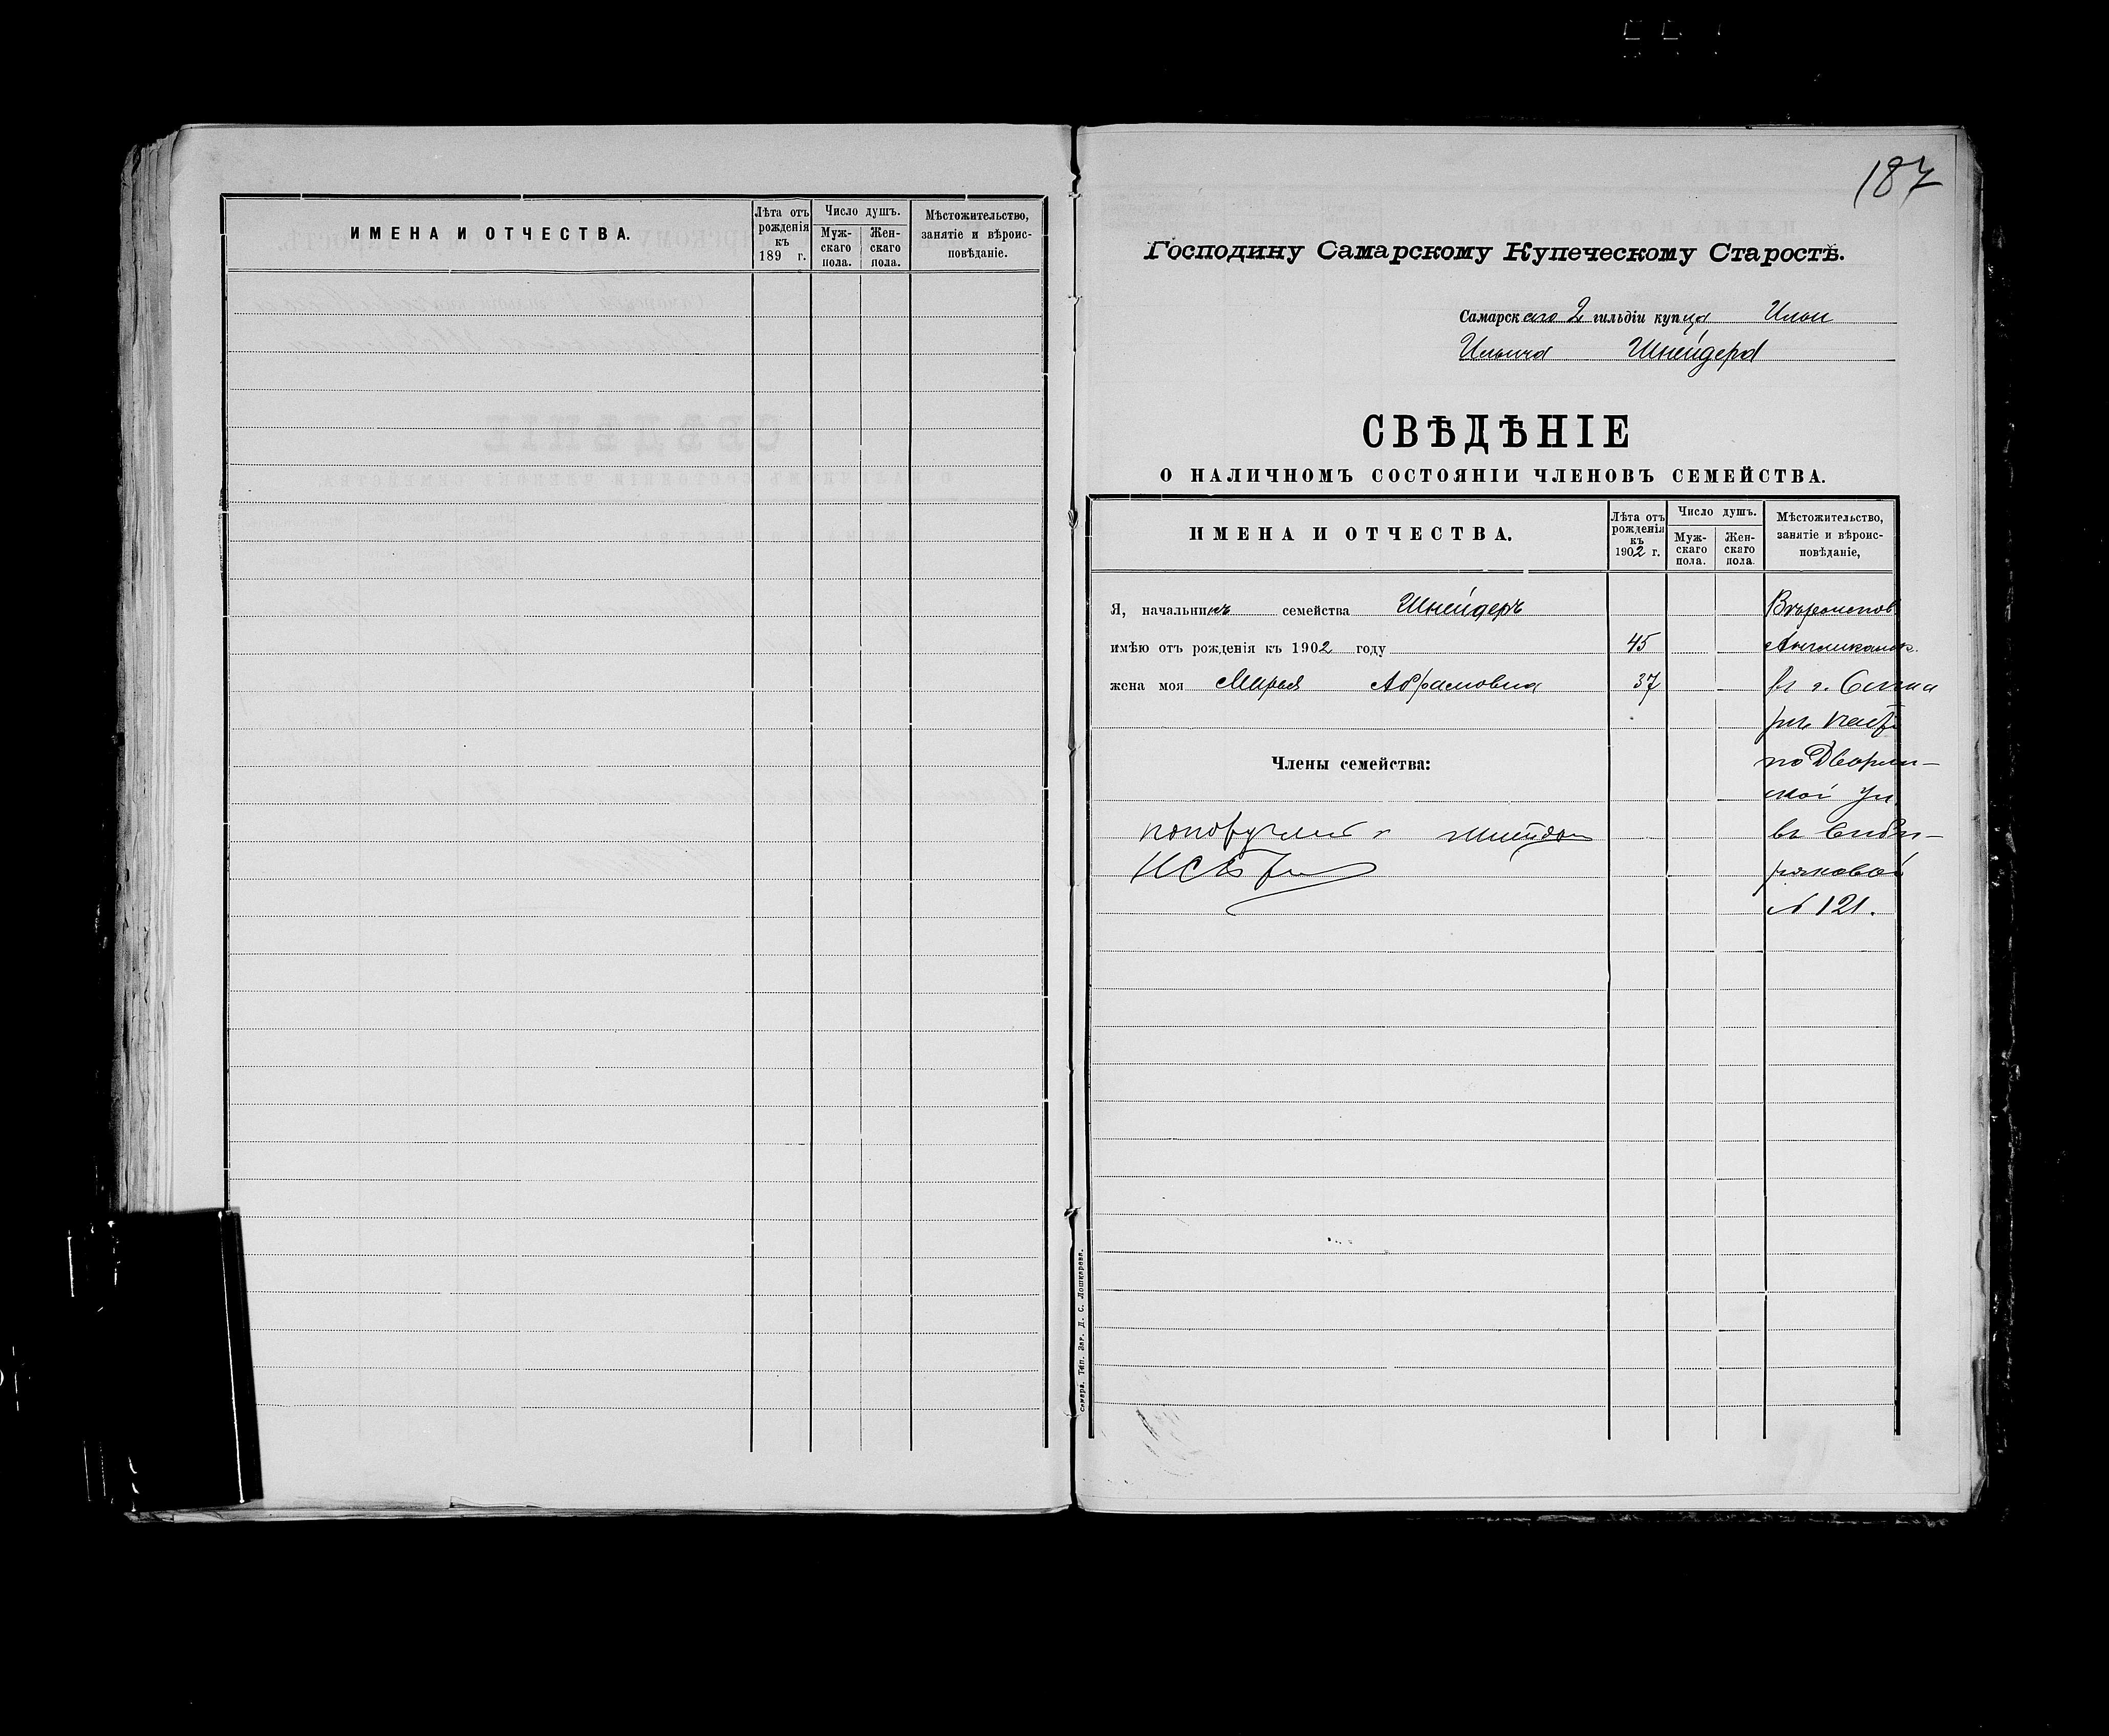 ИМЕНА И ОТЧЕСТВА.
Лѣта отъ рожденія къ 189 г.
Число душъ.
Муж-скаго пола.
Жен-скаго пола.
Мѣстожительство, занятіе и вѣроис-повѣданіе.
187
Господину Самарскому Купеческому Старостѣ.
Самарскаго 2 гильдіи купца Ильи
Ильича Шнейдера
СВѢДѢНІЕ
О НАЛИЧНОМЪ СОСТОЯНІИ ЧЛЕНОВЪ СЕМЕЙСТВА.
ИМЕНА И ОТЧЕСТВА.
Лѣта отъ рожденія къ 1902 г.
Число душъ.
Муж-скаго пола.
Жен-скаго пола.
Мѣстожительство, занятіе и вѣроис-повѣданіе,
Я, начальникъ семейства Шнейдеръ Вѣроиспов
имѣю отъ рожденія къ 1902 году 45 Англиканск.
жена моя Марья Абрамовна 37
Члены семейства: по Дворян-
ской ул.
№ 121.
Самара. Тип. Заг. Д. С. Лошкарева.